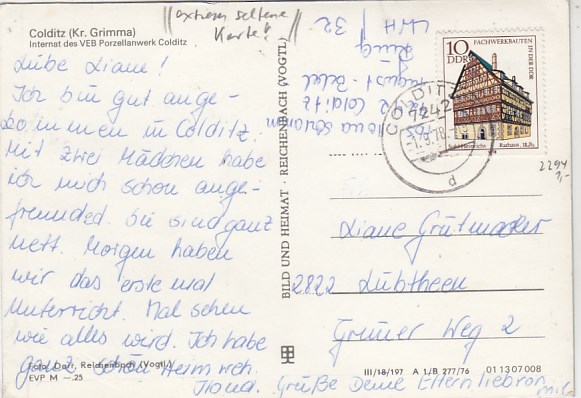 Colditz (Kr. Grimma)
Internat des VEB Porzellanwerk Colditz
extrem seltene
Karte!
Liebe Liane!
Ich bin gut ange-
kommen in Colditz.
Mit zwei Mädchen habe
ich mich schon ange-
freundet. Sie sind ganz
nett. Morgen haben
wir das erste mal
Unterricht. Mal sehen
wie alles wird. Ich habe
ganz schön Heimweh.
Ilona. Grüße Deine Eltern lieb von
mir
Foto: Darr, Reichenbach (Vogtl.)
EVP M —.25
BILD UND HEIMAT · REICHENBACH (VOGTL)
Ilona
Colditz
August-Bebel
Ring
LWH 32
10
DDR
FACHWERKBAUTEN
IN DER DDR
Suhl-Heinrichs Rathaus, 16.Jh.
COLDITZ
7242
d
2294
Liane Grützmacher
2822 Lübtheen
Grüner Weg 2
III/18/197 A 1/B 277/76 01 13 07 008